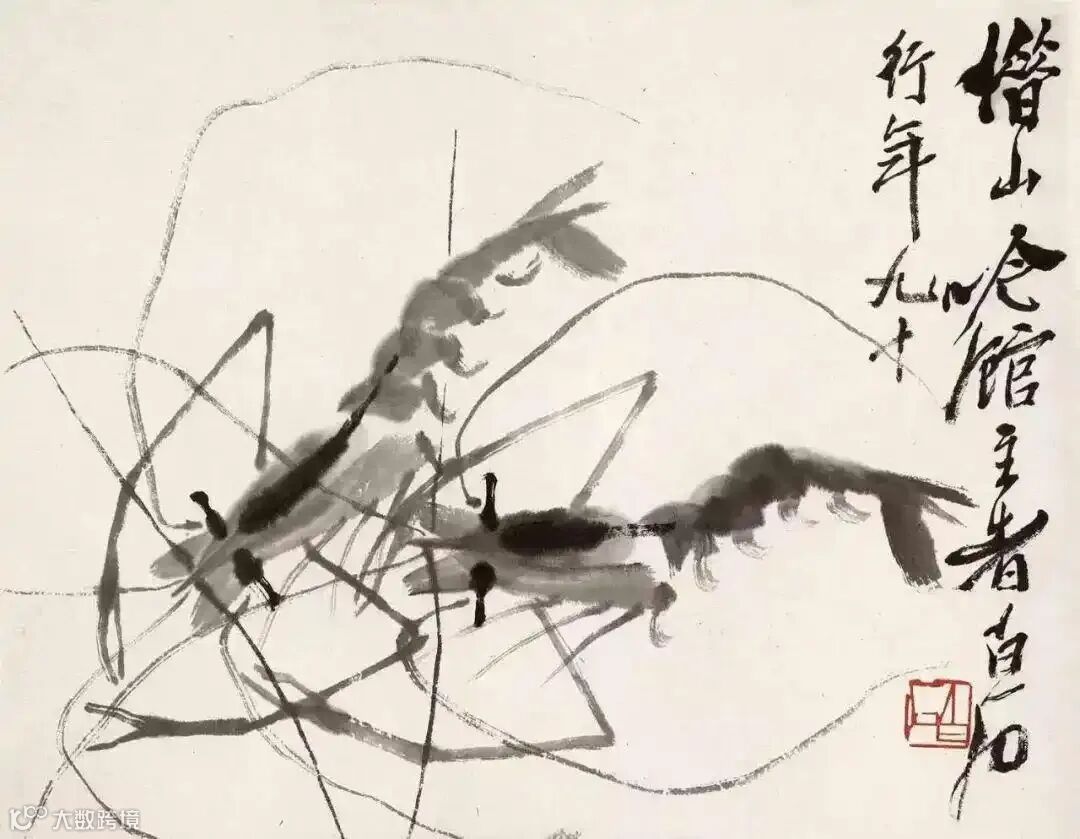 借山吟館主者白石
行年九十
大数跨境